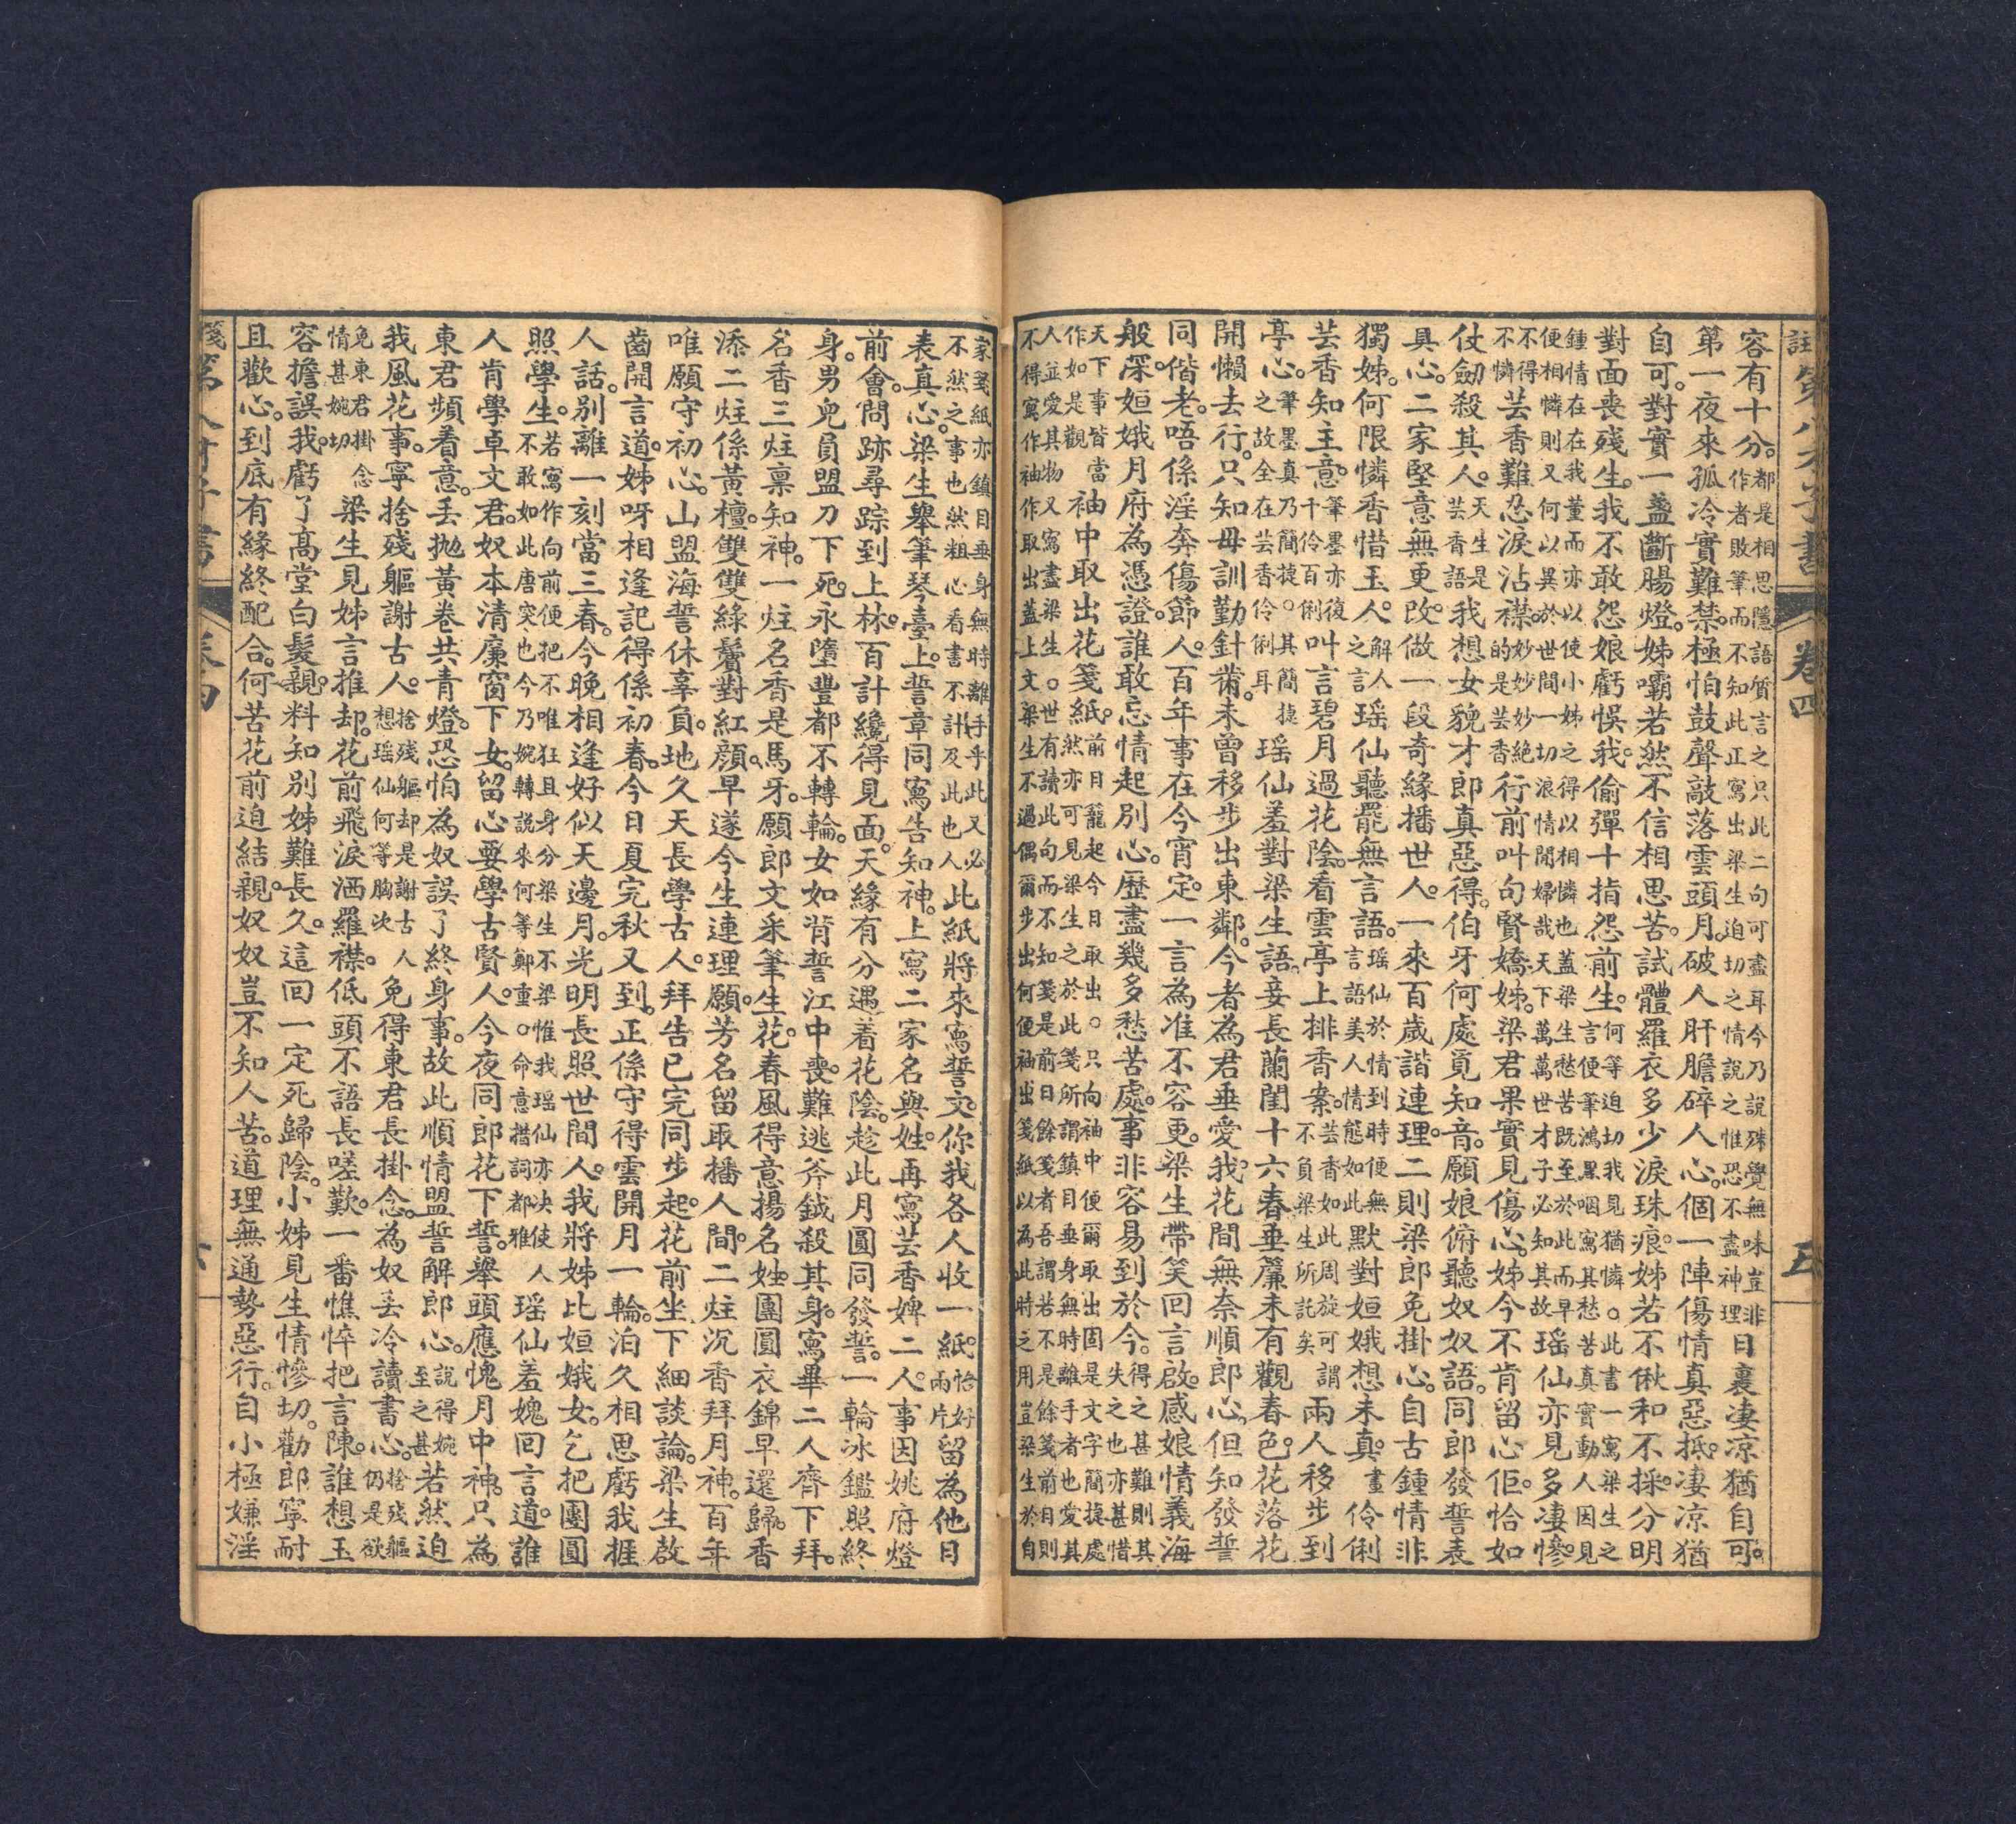 註第八才子書
卷四
五
容有十分。都是相思隱語質言之只此二句可盡耳今乃說殊覺無味豈非作者敗筆而不知此正寫出梁生迫切之情說之惟恐不盡神理日裏凄凉猶自可。
第一夜來孤冷實難禁。極怕鼓聲敲落雲頭月。破人肝膽碎人心。個一陣傷情真惡抵。凄凉猶
自可。對實一盞斷腸燈。姊嚩若然不信相思苦。試體羅衣多少淚珠痕。姊若不愀和不採。分明
對面喪殘生。我不敢怨娘虧悞我。偷彈十指怨前生。何等迫切我見猶憐。此書一寫梁生之言便筆鴻墨咽寫其愁苦真實動人因見
鍾情在在我董而亦以使小姊之得以相憐也蓋梁生愁苦既至於此而早便相憐則又何以異於世間一切浪情閒婦哉天下萬萬世才子必知其故瑶仙亦見多凄慘。
不得不憐芸香難忍淚沾襟。妙妙妙絕的是芸香行前叫句賢嬌姊。梁君果實見傷心。姊今不肯留心佢。恰如
仗劒殺其人。天生是芸香語我想女貌才郎真惡得。伯牙何處覓知音。願娘俯聽奴奴語。同郎發誓表
真心。二家堅意無更改。做一段奇緣播世人。一來百歲諧連理。二則梁郎免掛心。自古鍾情非
獨姊。何限憐香惜玉人。解人之言瑶仙聽罷無言語。瑶仙於情到時便無言語美人情態如此默對姮娥想未真。畫伶俐
芸香知主意。筆墨亦復千伶百俐叫言碧月過花陰。看雲亭上排香案。芸香如此周旋可謂不負梁生所託矣兩人移步到
亭心。筆墨真乃簡捷。其簡捷之故全在芸香伶俐耳瑶仙羞對梁生語。妾長蘭閨十六春。垂簾未有觀春色。花落花
開懶去行。只知母訓勤針黹。未曾移步出東鄰。今者為君垂愛我。花間無奈順郎心。但知發誓
同偕老。唔係淫奔傷節人。百年事在今宵定。一言為准不容更。梁生帶笑回言啟。感娘情義海
般深。姮娥月府為憑證。誰敢忘情起別心。歷盡幾多愁苦處。事非容易到於今。得之甚難則其失之也亦甚惜
天下事皆當作如是觀袖中取出花箋紙。前日籠起今日取出。只向袖中便爾取出固是文字簡捷處然亦可見梁生之於此箋所謂鎮目垂身無時離手者也愛其
人並愛其物又寫盡梁生。世有讀此向而不知箋是前日餘箋者吾謂若不是餘箋前日則不得寫作袖作取出蓋上文梁生不過偶爾步出何便袖出箋紙以為此時之用豈梁生於自
家箋紙亦鎮目垂身無時離手乎此又必不然之事也然粗心看書不計及此也人此紙將來寫誓文。你我各人收一紙。恰好兩片留為他日
表真心。梁生舉筆琴臺上。誓章同寫告知神。上寫二家名與姓。再寫芸香婢二人。事因姚府燈
前會。問跡尋踪到上林。百計纔得見面。天緣有分遇着花陰。趁此月圓同發誓。一輪冰鑑照終
身。男兒負盟刀下死。永墮豐都不轉輪。女如背誓江中喪。難逃斧鉞殺其身。寫畢二人齊下拜。
名香三炷稟知神。一炷名香是馬牙。願郎文采筆生花。春風得意揚名姓。團圓衣錦早還歸。香
添二炷係黃檀。雙雙綠鬢對紅顔。早遂今生連理願。芳名留取播人間。二炷沉香拜月神。百年
唯願守初心。山盟海誓休辜負。地久天長學古人。拜告已完同步起。花前坐下細談論。梁生啟
齒開言道。姊呀相逢記得係初春。今日夏完秋又到。正係守得雲開月一輪。泊久相思虧我捱
人話。別離一刻當三春。今晚相逢好似天邊月。光明長照世間人。我將姊比姮娥女。乞把團圓
照學生。若寫作向前便把不唯狂且身分梁生不梁惟我瑶仙亦决使人不敢如此唐突也今乃婉轉說來何等鄭重。命意措詞都雅瑶仙羞媿回言道。誰
人肯學卓文君。奴本清廉窗下女。留心要學古賢人。今夜同郎花下誓。舉頭應愧月中神。只為
東君頻着意。丟拋黃卷共青燈。恐怕為奴誤了終身事。故此順情盟誓解郎心。說得婉至之甚若然迫
我風花事。寧捨殘軀謝古人。捨殘軀却是謝古人想瑶仙何等胸次免得東君長掛念。為奴丟冷讀書心。捨殘軀仍是欲
免東君掛念情甚婉切梁生見姊言推却。花前飛淚洒羅襟。低頭不語長嗟歎。一番憔悴把言陳。誰想玉
容擔誤我。虧了高堂白髮親。料知別姊難長久。這回一定死歸陰。小姊見生情慘切。勸郎寧耐
且歡心。到底有緣終配合。何苦花前迫結親。奴奴豈不知人苦。道理無通勢惡行。自小極嫌淫
箋第八才子書
卷四